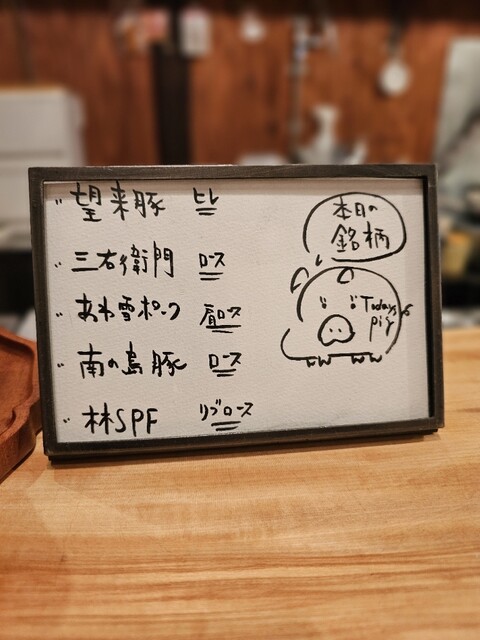 望来豚 ヒレ
三右衛門 ロース
あわ雪ポーク 肩ロース
南の島豚 ロース
林SPF リブロース
本日の
銘柄
Todays
pig